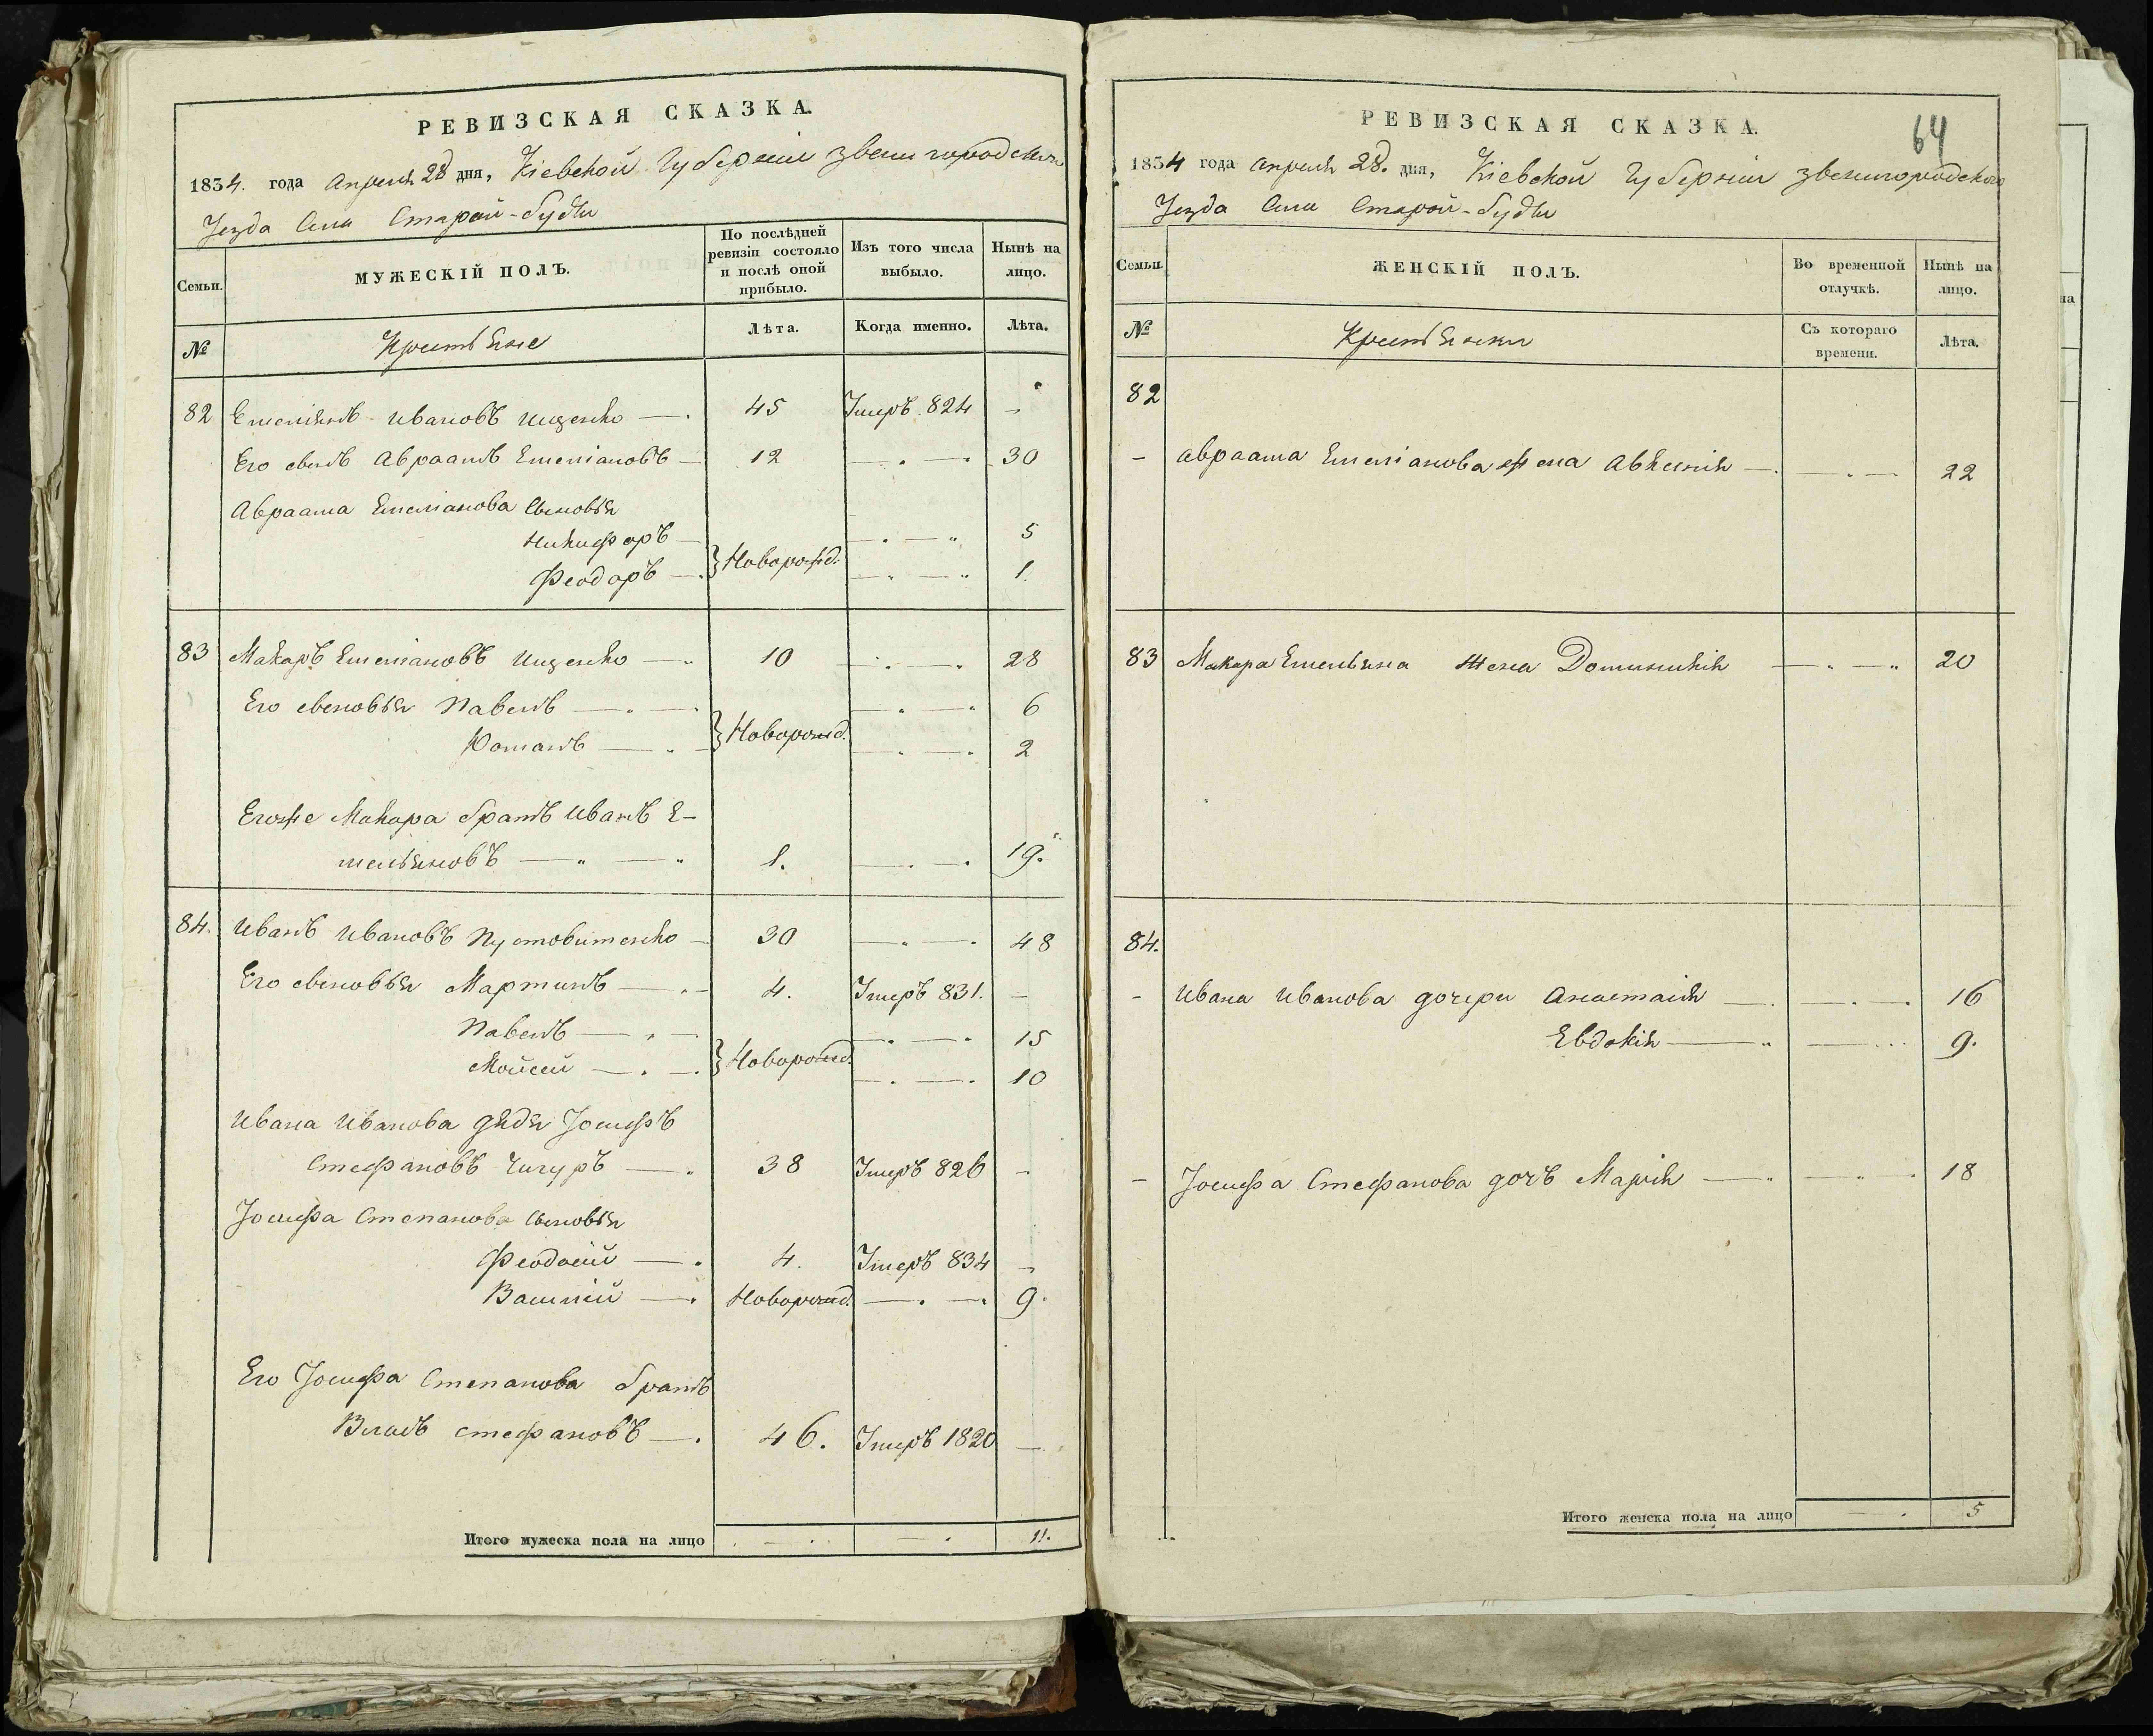 РЕВИЗСКАЯ СКАЗКА.
1834. года Апреля 28 дня, Кіевской Губерніи Звенигородскаго
Уезда Села Старой-Буды
Семьи.
МУЖЕСКІЙ ПОЛЪ.
По послѣдней ревизіи состояло и послѣ оной прибыло.
Изъ того числа выбыло.
Нынѣ на лицо.
№
Крестьяне
Лѣта.
Когда именно.
Лѣта.
82 Емеліянъ Ивановъ Ищенко — 45 Умеръ 824 —
Его сынъ Авраамъ Емеліановъ — 12 — 30
Авраама Емеліанова сыновья
Никифоръ — — 5
} Новорожд.
Феодоръ — — 1.
83 Макаръ Емеліановъ Ищенко — 10 — 28
Его сыновья Павелъ — — 6
} Новорожд.
Романъ — — 2
Егоже Макара братъ Иванъ Е-
мельяновъ — 1. — 19.
84. Иванъ Ивановъ Пустовитенко — 30 — 48
Его сыновья Мартинъ — 4. Умеръ 831. —
Павелъ — — 15
} Новорожд.
Мойсей — — 10
Ивана Иванова дядя Іосифъ
Стефановъ Чигуръ — 38 Умеръ 826 —
Іосифа Степанова сыновья
Феодосій — 4. Умеръ 834 —
Василій — Новорожд. — 9.
Его Іосифа Степанова братъ
Власъ Стефановъ — 46. Умеръ 1820 —
Итого мужеска пола на лицо — — 11.
64
РЕВИЗСКАЯ СКАЗКА.
1834 года Апреля 28. дня, Кіевской Губерніи Звенигородскаго
Уезда Села Старой-Буды
Семьи.
ЖЕНСКІЙ ПОЛЪ.
Во временной отлучкѣ.
Нынѣ на лицо.
№
Крестьянки
Съ котораго времени.
Лѣта.
82
- Авраама Емеліанова жена Авксенія — — 22
83 Макара Емельяна жена Доминикія — 20
84.
- Ивана Иванова дочери Анастасія — — 16
Евдокія — — 9.
- Іосифа Стефанова дочь Марія — — 18
Итого женска пола на лицо — 5